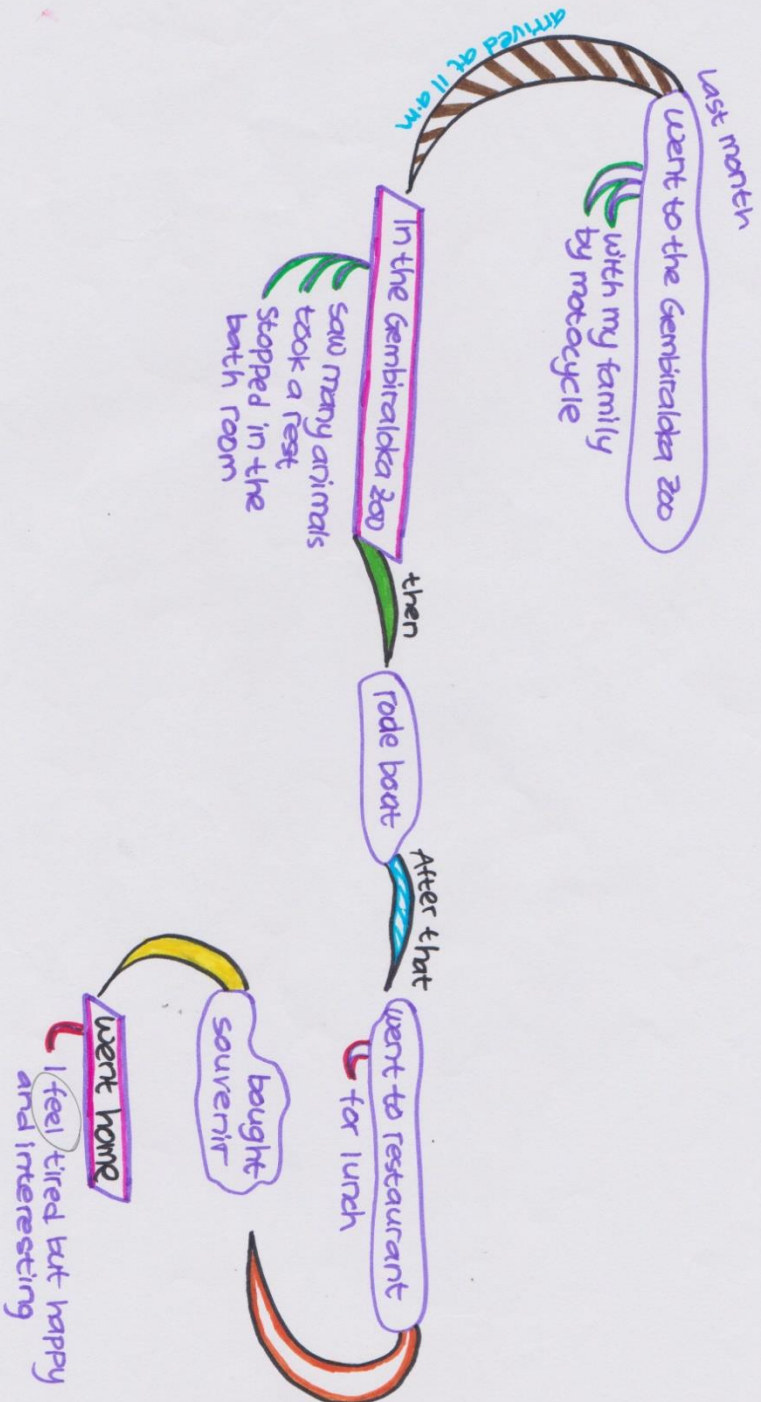 Last month
went to the Gembiraloka zoo
with my family
by motocycle
arrived at 11 a.m
In the Gembiraloka zoo
saw many animals
took a rest
Stopped in the
bath room
then
rode boat
After that
went to restaurant
for lunch
bought
souvenir
went home
I feel tired but happy
and interesting